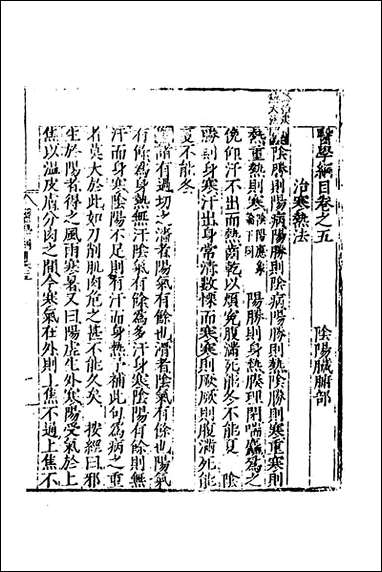 醫學綱目卷之五
陰陽臟腑部
治寒熱法
陰勝則陽病陽勝則陰病陽勝則熱陰勝則寒重寒則
熱重熱則寒陰陽應象論下同 陽勝則身熱腠理閉喘麤為之
俛仰汗不出而熱齒乾以煩冤腹滿死能冬不能夏 陰
勝則身寒汗出身常清數慄而寒寒則厥厥則腹滿死能
夏不能冬
諸有過切之濇者陽氣有餘也滑者陰氣有餘也陽氣
有餘為身熱無汗陰氣有餘為多汗身寒陰陽有餘則無
汗而身寒陰陽不足則有汗而身熱了補此句為病之重
者莫大於此如刀削肌肉危之甚不能久矣 按經曰邪
生於陽者得之風雨寒暑又曰陽虛生外寒陽受氣於上
焦以溫皮膚分肉之間今寒氣在外則上焦不通上焦不